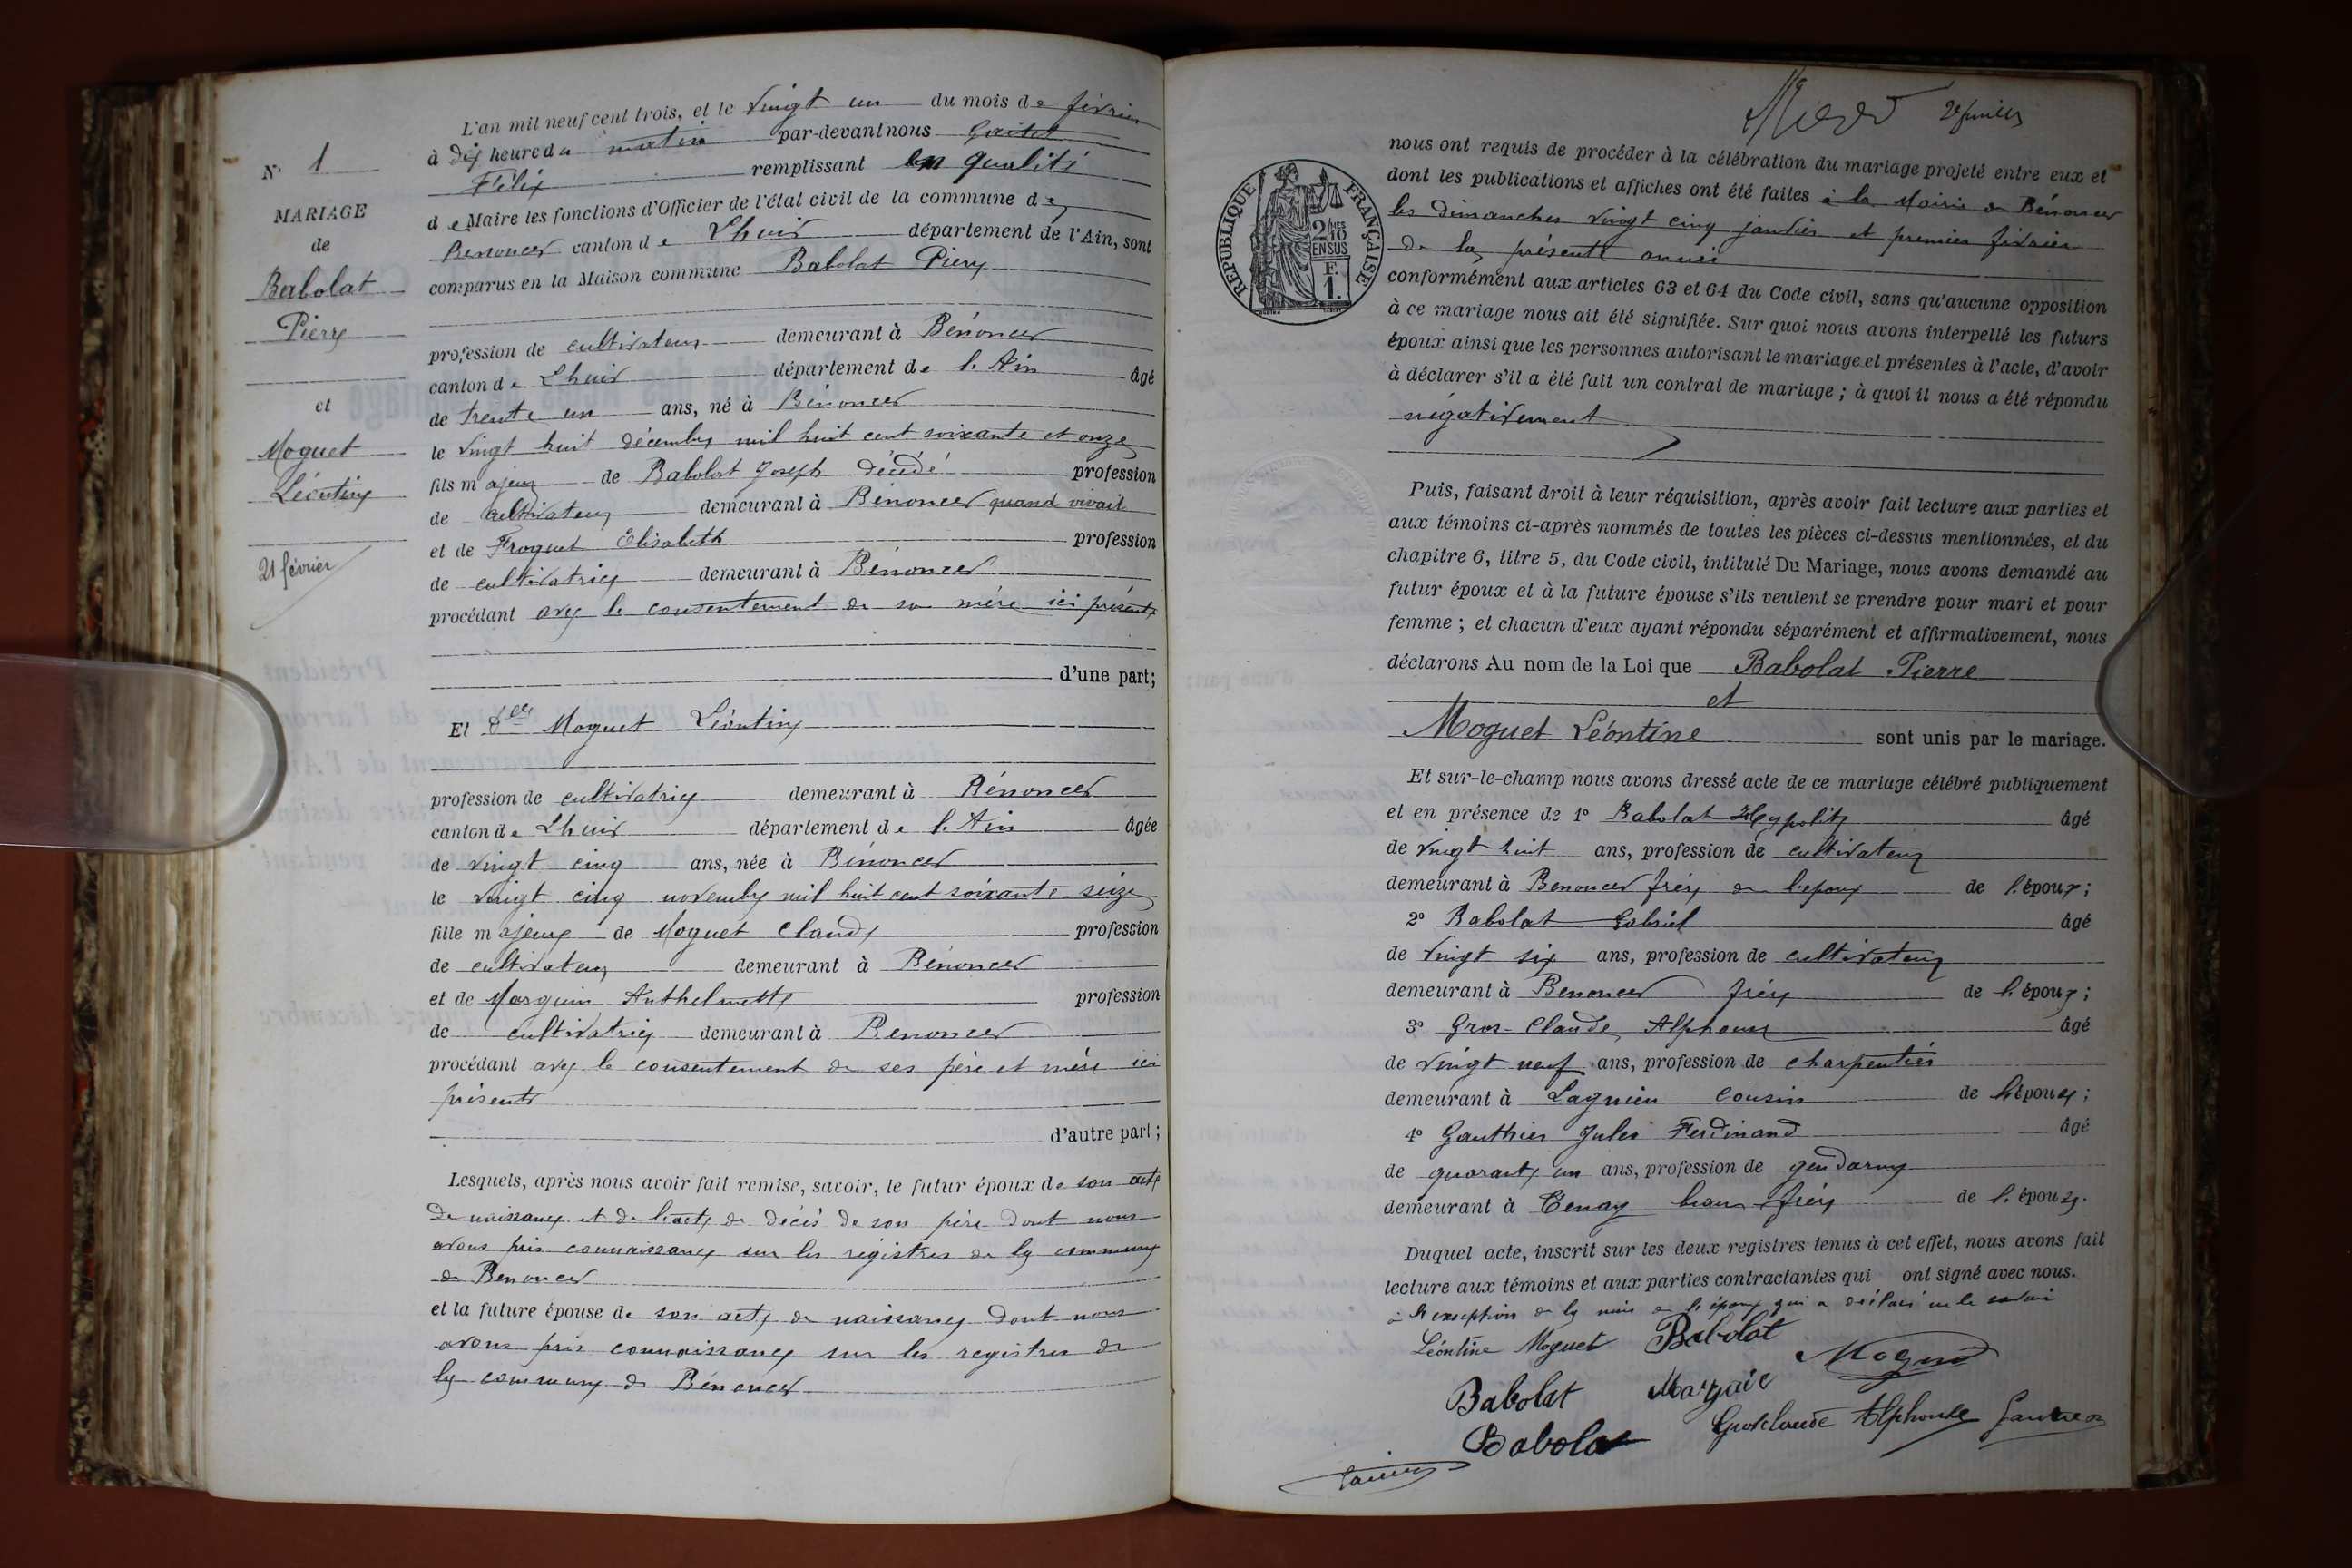 N° 1
MARIAGE
de
Babolat
Pierre
et
Moguet
Léontine
21 février
L'an mil neuf cent trois, et le vingt un du mois de février
à dix heure du matin par-devant nous
Félix remplissant en qualité
de Maire les fonctions d'Officier de l'état civil de la commune de
Benonces canton de Lhuis département de l'Ain, sont
comparus en la Maison commune Babolat Pierre
profession de cultivateur demeurant à Bénonces
canton de Lhuis département de l'Ain âgé
de trente un ans, né à Bénonces
le vingt huit décembre mil huit cent soixante et onze
fils majeur de Babolat Joseph décédé profession
de cultivateur demeurant à Bénonces quand vivait
et de Froquet Elisabeth profession
de cultivatrice demeurant à Bénonces
procédant avec le consentement de sa mère ici présente
d'une part;
Et Dlle Moguet Léontine
profession de cultivatrice demeurant à Bénonces
canton de Lhuis département de l'Ain âgée
de vingt cinq ans, née à Bénonces
le vingt cinq novembre mil huit cent soixante-seize
fille majeure de Moguet Claude profession
de cultivateur demeurant à Bénonces
et de Marguin Anthelmette profession
de cultivatrice demeurant à Benonces
procédant avec le consentement de ses père et mère ici
présents
d'autre part;
Lesquels, après nous avoir fait remise, savoir, le futur époux de son acte
de naissance et de l'acte de décès de son père dont nous
avons pris connaissance sur les registres de la commune
de Benonces
et la future épouse de son acte de naissance dont nous
avons pris connaissance sur les registres de
la commune de Bénonces
2e feuillet
REPUBLIQUE FRANÇAISE
2/10
EN SUS
F.
1.
nous ont requis de procéder à la célébration du mariage projeté entre eux et
dont les publications et affiches ont été faites à la Mairie de Bénonces
les dimanches vingt cinq janvier et premier février
de la présente année
conformément aux articles 63 et 64 du Code civil, sans qu'aucune opposition
à ce mariage nous ait été signifiée. Sur quoi nous avons interpellé les futurs
époux ainsi que les personnes autorisant le mariage et présentes à l'acte, d'avoir
à déclarer s'il a été fait un contrat de mariage; à quoi il nous a été répondu
négativement
Puis, faisant droit à leur réquisition, après avoir fait lecture aux parties et
aux témoins ci-après nommés de toutes les pièces ci-dessus mentionnées, et du
chapitre 6, titre 5, du Code civil, intitulé Du Mariage, nous avons demandé au
futur époux et à la future épouse s'ils veulent se prendre pour mari et pour
femme; et chacun d'eux ayant répondu séparément et affirmativement, nous
déclarons Au nom de la Loi que Babolat Pierre
et
Moguet Léontine sont unis par le mariage.
Et sur-le-champ nous avons dressé acte de ce mariage célébré publiquement
et en présence de 1° Babolat Hypolite âgé
de vingt huit ans, profession de cultivateur
demeurant à Benonces frère de l'époux de l'époux;
2° Babolat Gabriel âgé
de vingt six ans, profession de cultivateur
demeurant à Benonces frère de l'époux;
3° Gros-Claude Alphonse âgé
de vingt neuf ans, profession de charpentier
demeurant à Lagnieu cousin de l'épouse;
4° Gauthier Jules Ferdinand âgé
de quarante un ans, profession de gendarme
demeurant à Tenay beau frère de l'épouse.
Duquel acte, inscrit sur les deux registres tenus à cet effet, nous avons fait
lecture aux témoins et aux parties contractantes qui ont signé avec nous.
à l'exception de la mère de l'époux qui a déclaré ne le savoir
Léontine Moguet Babolat
Moguet
Babolat
Babolat
Grosclaude Alphonse